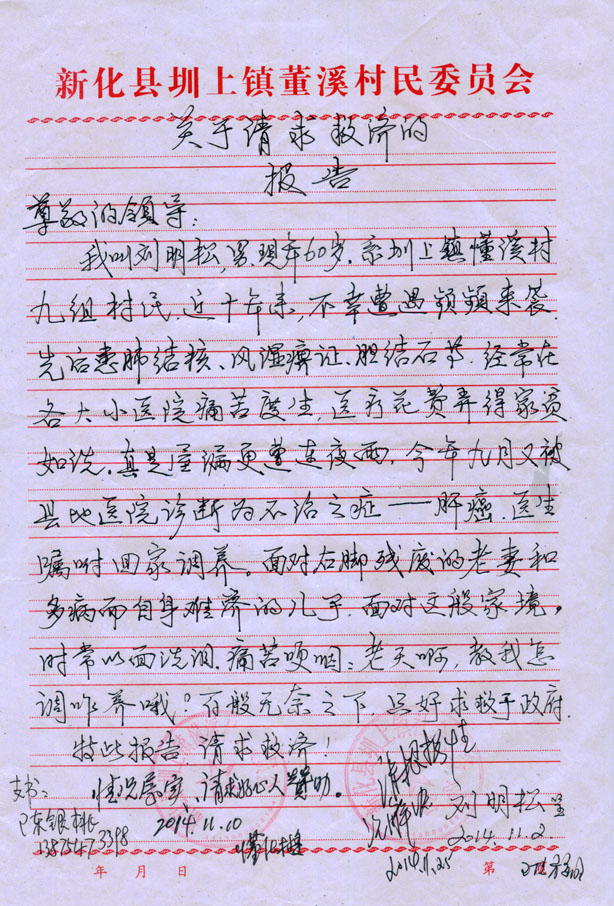 新化县圳上镇董溪村民委员会
关于请求救济的
报告
尊敬的领导:
我叫刘明松,男.现年60岁.系圳上镇懂溪村
九组村民.近十年来,不幸遭遇频频来袭.
先后患肺结核、风湿痹证、胆结石等.经常在
各大小医院痛苦度生,医疗花费弄得家资
如洗.真是屋漏更遭连夜雨.今年九月又被
县地医院诊断为不治之症——肝癌.医生
嘱咐回家调养。面对右脚残废的老妻和
多病而自身难济的儿子.面对这般家境,
时常以面洗泪.痛苦哽咽:老天啊,教我怎
调咋养哦?百般无奈之下.只好求救于政府.
特此报告 请求救济!
支书:
情况属实、请求好心人赞助。
2014.11.10
13875473398
刘明松呈
2014.11.2.
2014.11.25
年 月 日
第